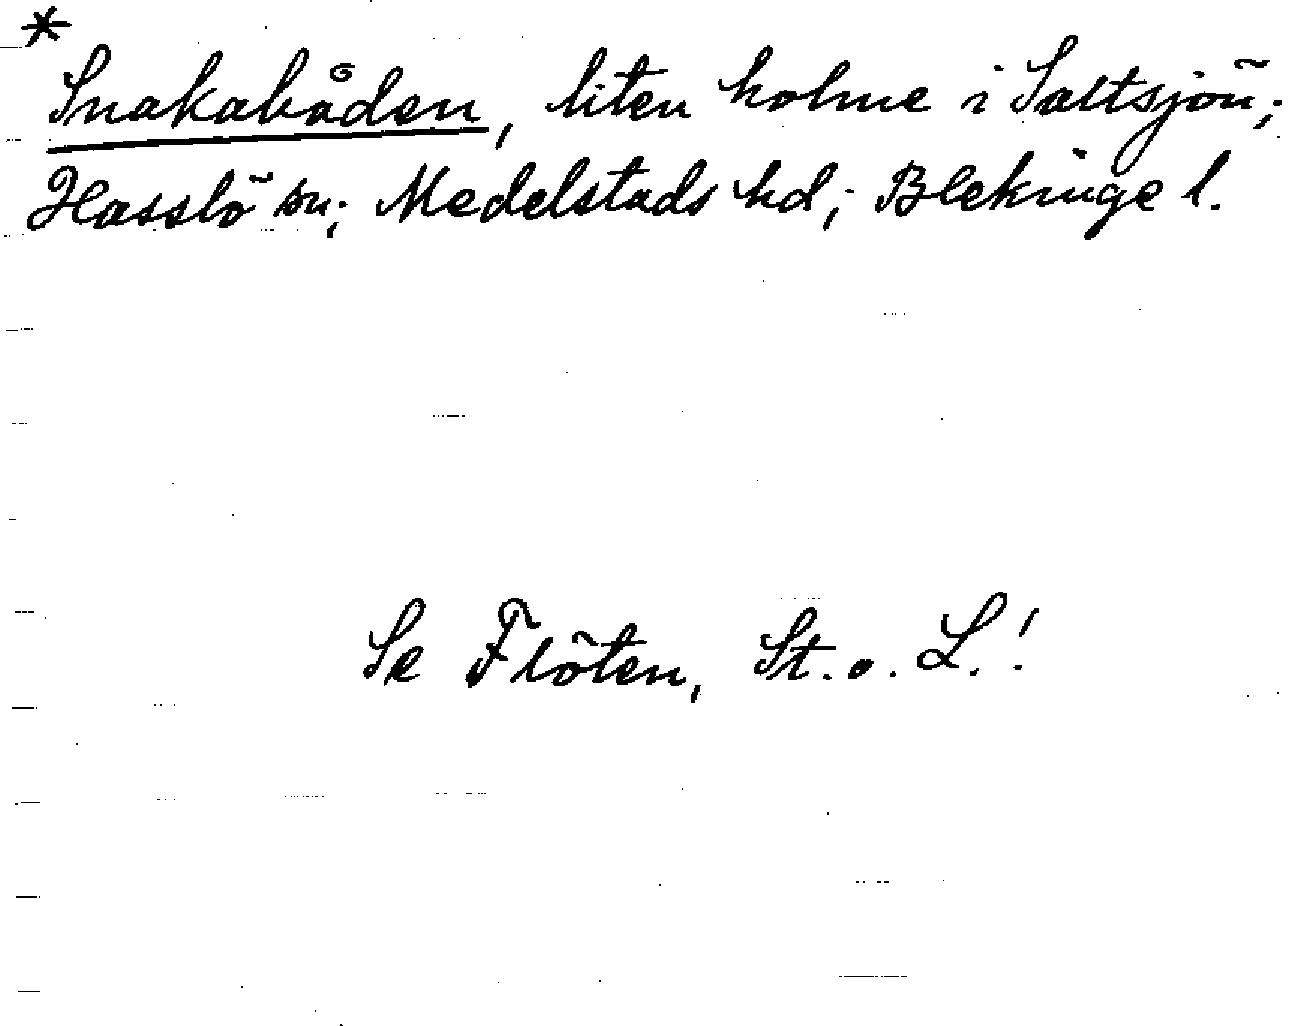 *
Snakabåden, liten holme i Saltsjön;
Hasslö sn; Medelstads hd; Blekinge l.
Se Flöten, St. o. L.!